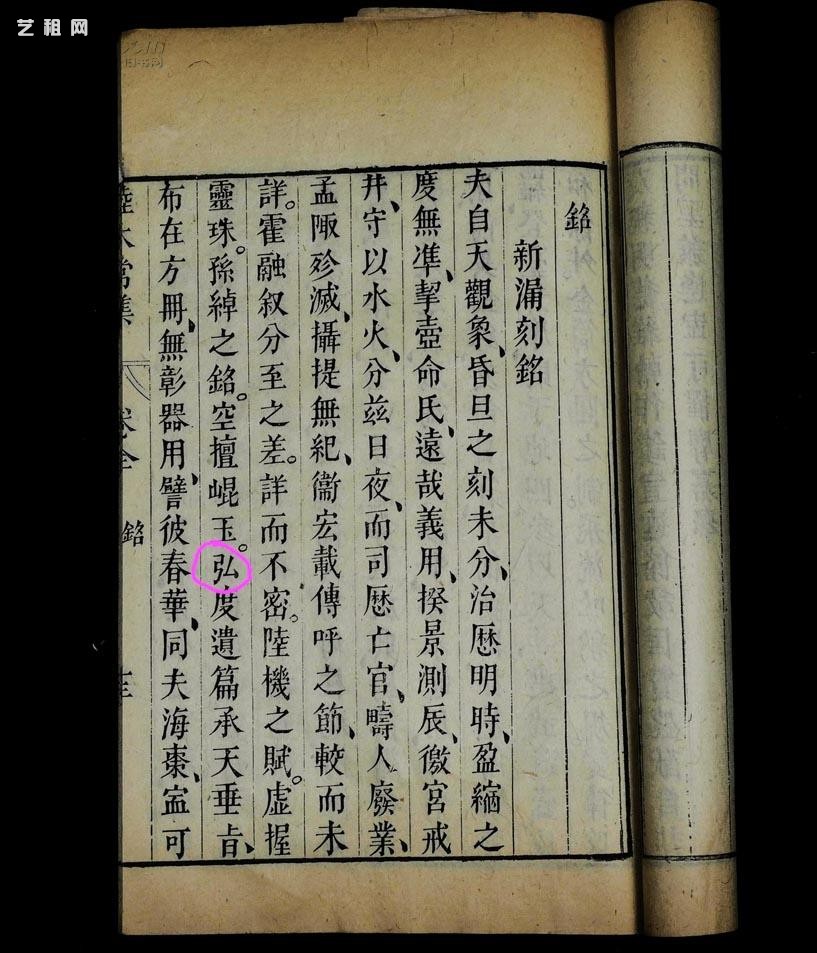 艺租网
銘
新漏刻銘
夫自天觀象、昏旦之刻未分、治厯明時、盈縮之
度無凖、挈壺命氏、遠哉義用、揆景測辰、徼宮戒
井、守以水火、分玆日夜、而司厯亡官、疇人廢業、
孟陬殄滅、攝提無紀、衞宏載傳呼之節、較而未
詳。霍融叙分至之差。詳而不密。陸機之賦。虛握
靈珠。孫綽之銘。空擅崐玉。弘度遺篇承天垂旨、
布在方冊、無彰器用、譬彼春華、同夫海棗、寍可
陸太常集 卷全 銘